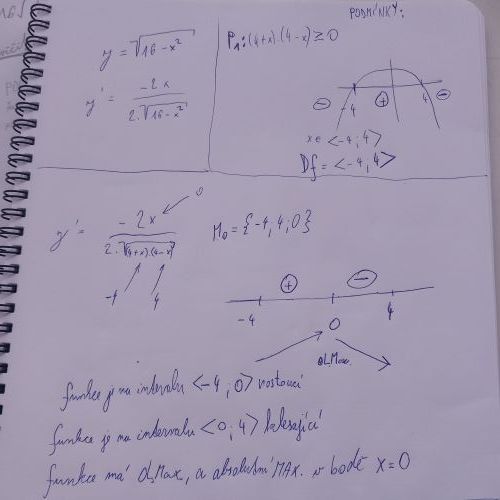 PODMÍNKY:
y = √16-x²
P₁: (4+x).(4-x) ≥ 0
y' = -2x / 2.√16-x²
⊖ ⊕ ⊖
4 4
x ∈ <-4; 4>
Df = <-4, 4>
y' = -2x / 2.√(4+x).(4-x)
0
M₀ = {-4, 4; 0}
-4 4
⊕ ⊖
-4 0 4
funkce je na intervalu <-4; 0> rostoucí
funkce je na intervalu <0; 4> klesající
funkce má max, a absolutní max. v bodě x=0